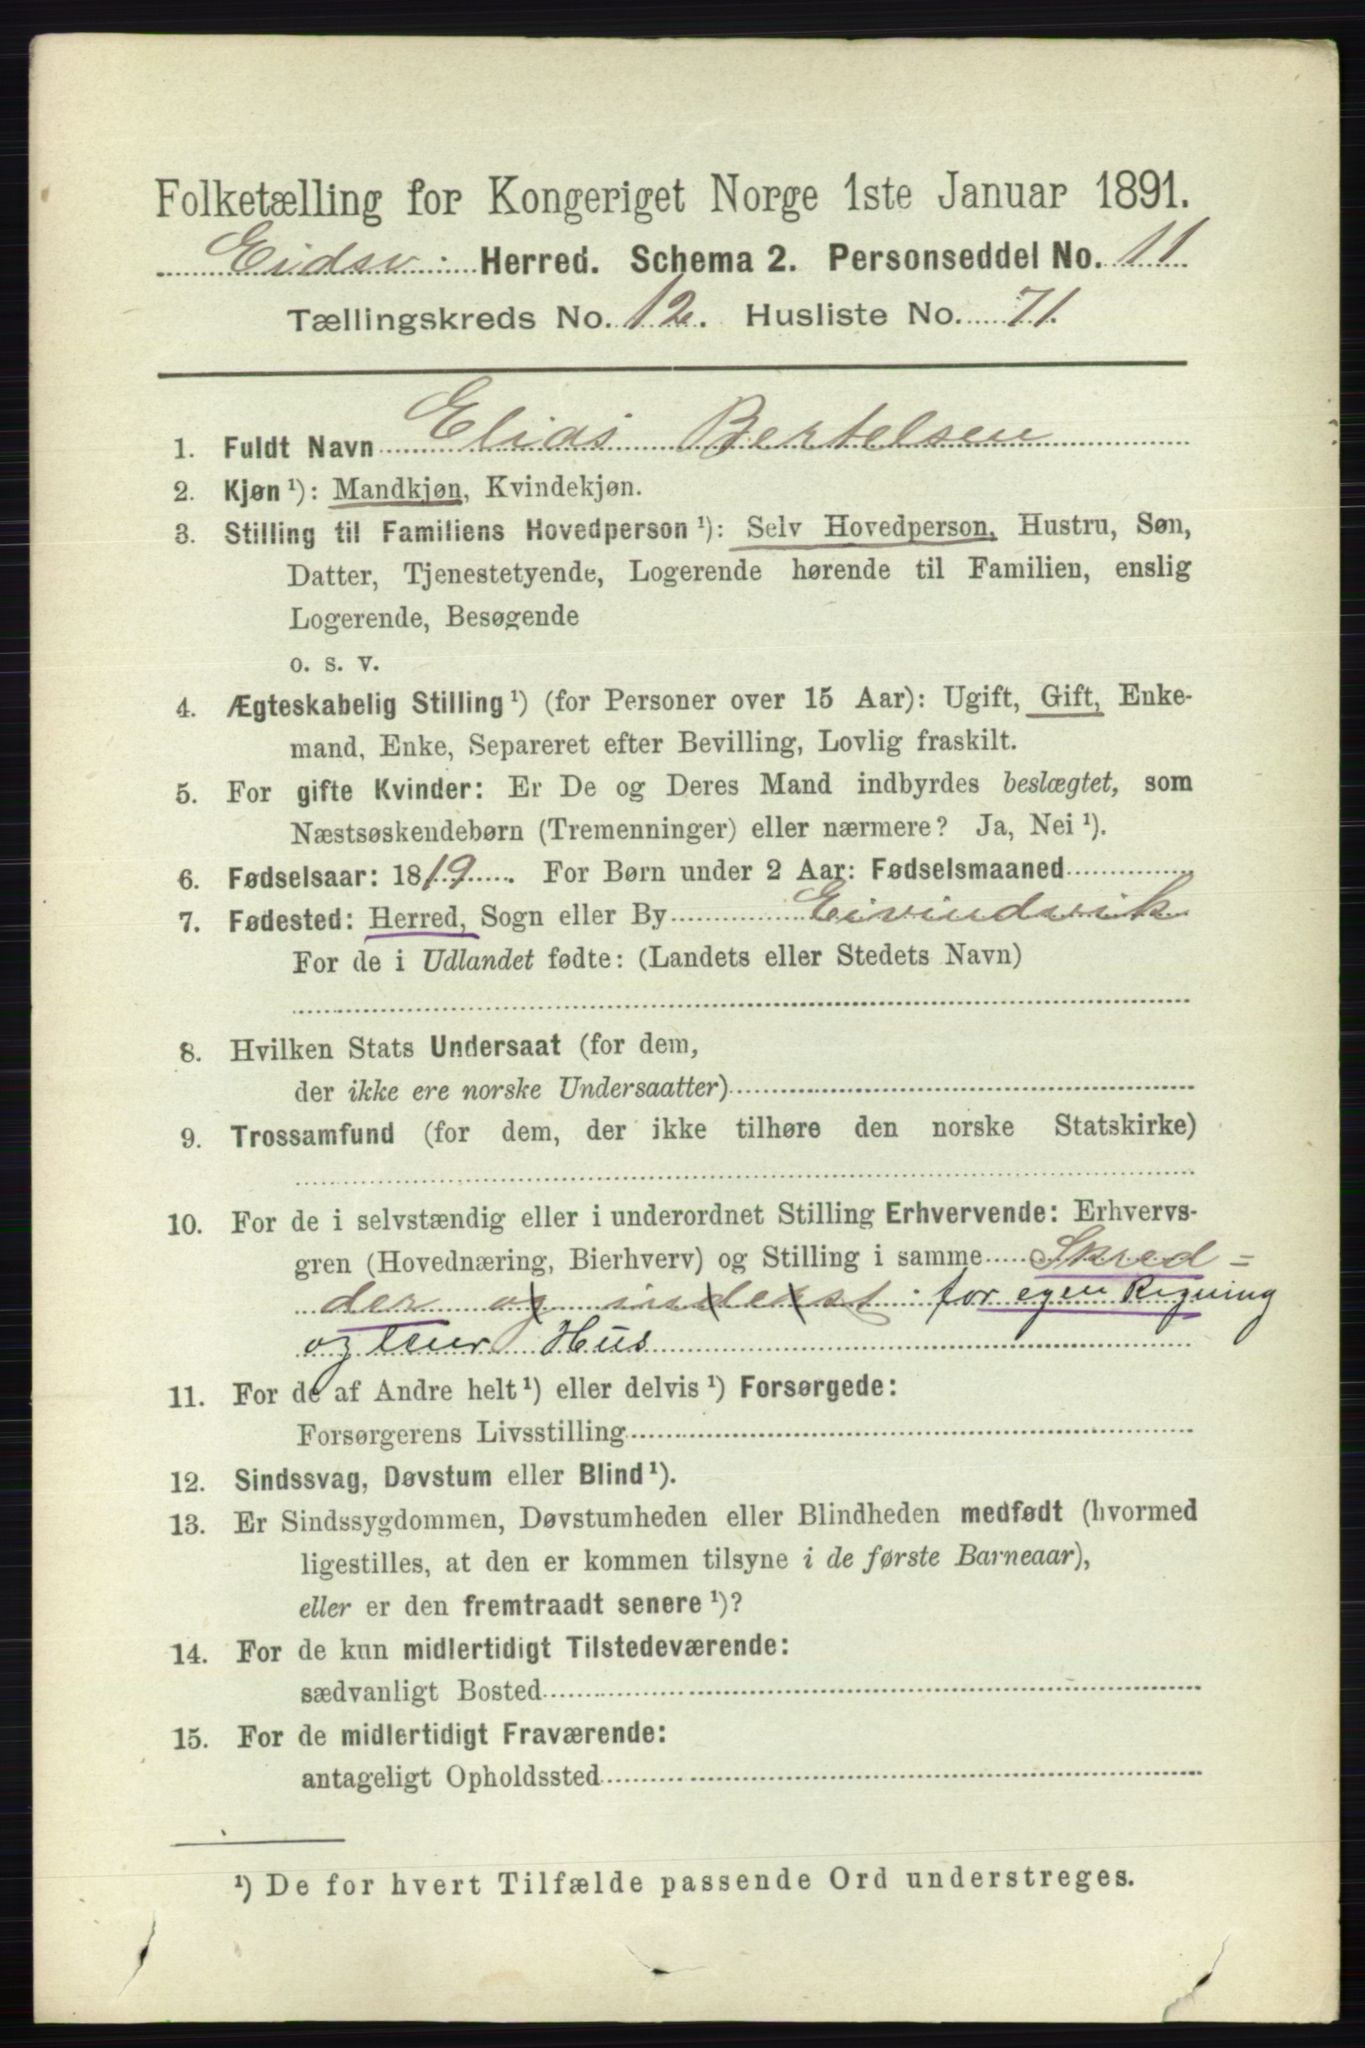 Folketælling for Kongeriget Norge 1ste Januar 1891.
Eidsv. Herred. Schema 2. Personseddel No. 11
Tællingskreds No. 12. Husliste No. 71.
1. Fuldt Navn Elias Bertelsen
2. Kjøn ¹): Mandkjøn, Kvindekjøn.
3. Stilling til Familiens Hovedperson ¹): Selv Hovedperson, Hustru, Søn,
Datter, Tjenestetyende, Logerende hørende til Familien, enslig
Logerende, Besøgende
o. s. v.
4. Ægteskabelig Stilling ¹) (for Personer over 15 Aar): Ugift, Gift, Enke-
mand, Enke, Separeret efter Bevilling, Lovlig fraskilt.
5. For gifte Kvinder: Er De og Deres Mand indbyrdes beslægtet, som
Næstsøskendebørn (Tremenninger) eller nærmere? Ja, Nei ¹).
6. Fødselsaar: 1819. For Børn under 2 Aar: Fødselsmaaned
7. Fødested: Herred, Sogn eller By Eivindsvik
For de i Udlandet fødte: (Landets eller Stedets Navn)
8. Hvilken Stats Undersaat (for dem,
der ikke ere norske Undersaatter)
9. Trossamfund (for dem, der ikke tilhøre den norske Statskirke)
10. For de i selvstændig eller i underordnet Stilling Erhvervende: Erhvervs-
gren (Hovednæring, Bierhverv) og Stilling i samme Skred=
der og inderst for egen Regning
og Hus
11. For de af Andre helt ¹) eller delvis ¹) Forsørgede:
Forsørgerens Livsstilling
12. Sindssvag, Døvstum eller Blind ¹).
13. Er Sindssygdommen, Døvstumheden eller Blindheden medfødt (hvormed
ligestilles, at den er kommen tilsyne i de første Barneaar),
eller er den fremtraadt senere ¹)?
14. For de kun midlertidigt Tilstedeværende:
sædvanligt Bosted
15. For de midlertidigt Fraværende:
antageligt Opholdssted
¹) De for hvert Tilfælde passende Ord understreges.